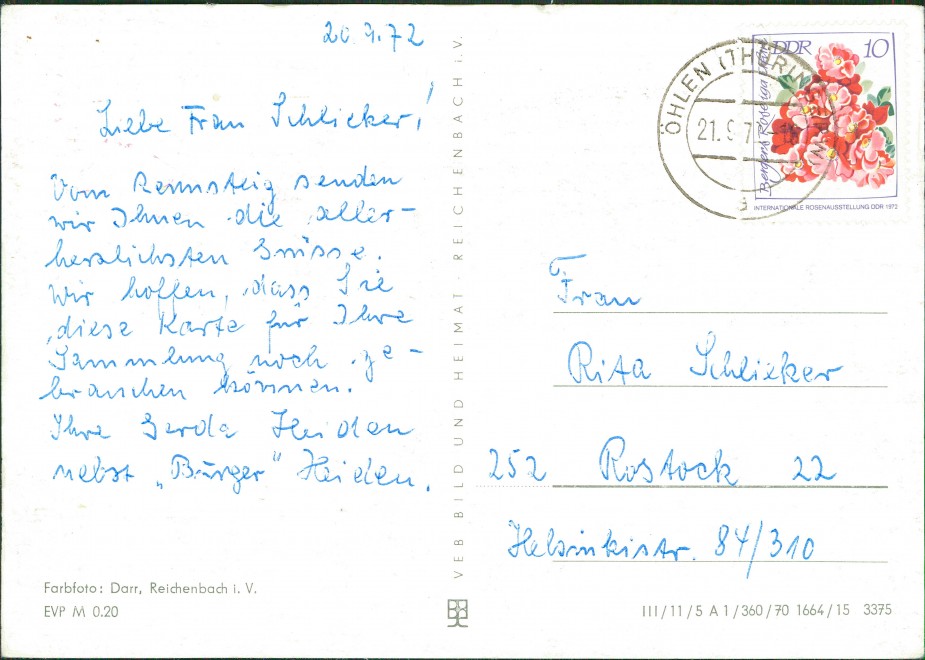 20.9.72
Liebe Frau Schlieker!
Vom Rennsteig senden
wir Ihnen die aller-
herzlichsten Grüsse.
Wir hoffen, dass Sie
diese Karte für Ihre
Sammlung noch ge-
brauchen können.
Ihre Gerda Heiden
nebst „Bürger" Heiden.
Farbfoto: Darr, Reichenbach i. V.
EVP M 0.20
VEB BILD UND HEIMAT · REICHENBACH i. V.
ÖHLEN (THÜRING
21.9.7
a
DDR 10
INTERNATIONALE ROSENAUSSTELLUNG DDR 1972
Frau
Rita Schlieker
252 Rostock 22
Helsinkistr. 84/310
III/11/5 A 1/360/70 1664/15 3375